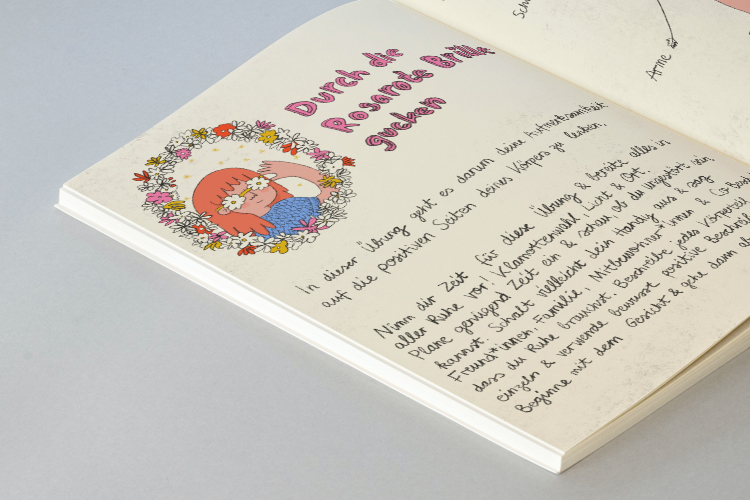 Durch die
Rosarote Brille
gucken
In dieser Übung geht es darum deine Aufmerksamkeit
auf die positiven Seiten deines Körpers zu lenken.
Nimm dir Zeit für diese Übung & bereite alles in
aller Ruhe vor! Klamottenwahl, Licht & Ort.
Plane genügend Zeit ein & schau, ob du ungestört sein
kannst. Schalt vielleicht dein Handy aus & sag
Freund*innen, Familie, Mitbewohner*innen & Co Bescheid
dass du Ruhe brauchst. Beschreibe jedes Körperteil
einzeln & verwende bewusst positive
Beginne mit dem Gesicht & gehe dann
Arme